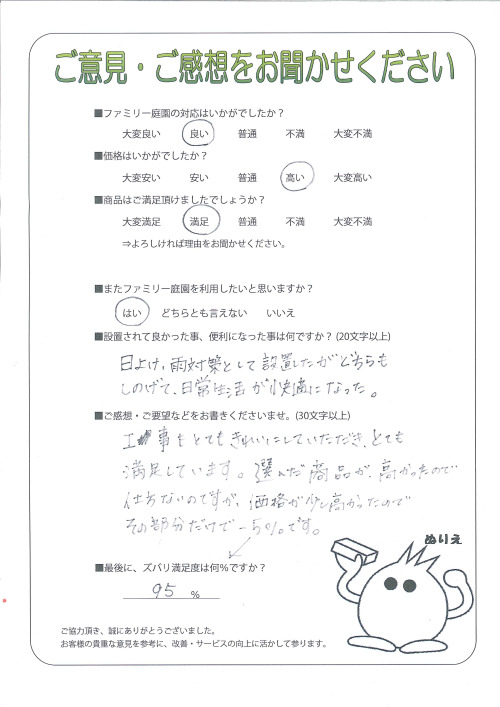 ご意見・ご感想をお聞かせください
■ファミリー庭園の対応はいかがでしたか？
大変良い 良い 普通 不満 大変不満
■価格はいかがでしたか？
大変安い 安い 普通 高い 大変高い
■商品はご満足頂けましたでしょうか？
大変満足 満足 普通 不満 大変不満
⇒よろしければ理由をお聞かせください。
■またファミリー庭園を利用したいと思いますか？
はい どちらとも言えない いいえ
■設置されて良かった事、便利になった事は何ですか？(20文字以上)
日よけ，雨対策として設置したがどちらも
しのげて、日常生活が快適になった。
■ご感想・ご要望などをお書きくださいませ。(30文字以上)
工事もとてもきれいにしていただき、とても
満足しています。選んだ商品が、高かったので
仕方ないのですが、価格が少し高かったので
その部分だけで－5％です。
■最後に、ズバリ満足度は何％ですか？
95 ％
ぬりえ
ご協力頂き、誠にありがとうございました。
お客様の貴重な意見を参考に、改善・サービスの向上に活かして参ります。